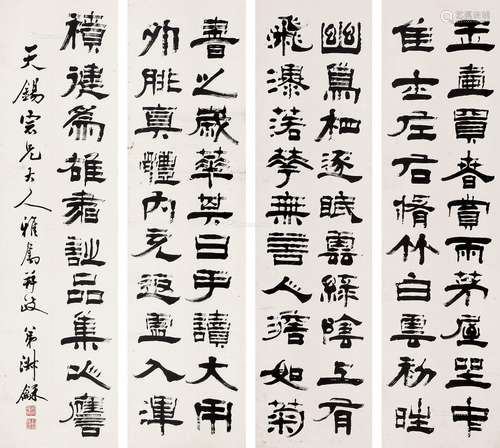 玉壺買春賞雨茅屋坐中
佳士左右脩竹白雲初晴
幽鳥相逐眠琴綠陰上有
飛瀑落華無言人澹如菊
書之歲華其曰可讀大用
外腓真體內充返虛入渾
積健為雄詩品集以應
天錫宗兄大人雅屬并政 弟龢